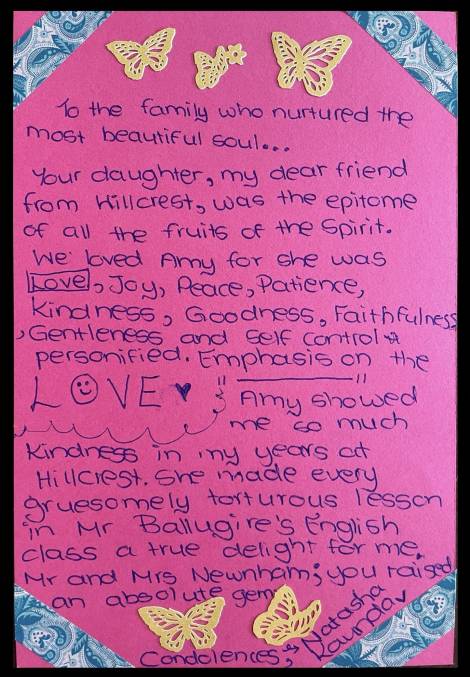 To the family who nurtured the
most beautiful soul...
Your daughter, my dear friend
from Hillcrest, was the epitome
of all the fruits of the Spirit.
We loved Amy for she was
Love, Joy, Peace, Patience,
Kindness, Goodness, Faithfulness
, Gentleness and Self Control
personified. Emphasis on the
LOVE
Amy showed
me so much
Kindness in my years at
Hillcrest. She made every
gruesomely torturous lesson
in Mr Ballugire's English
class a true delight for me.
Mr and Mrs Newnham; you raised
an absolute gem
Condolences,
Natasha
Kaunda